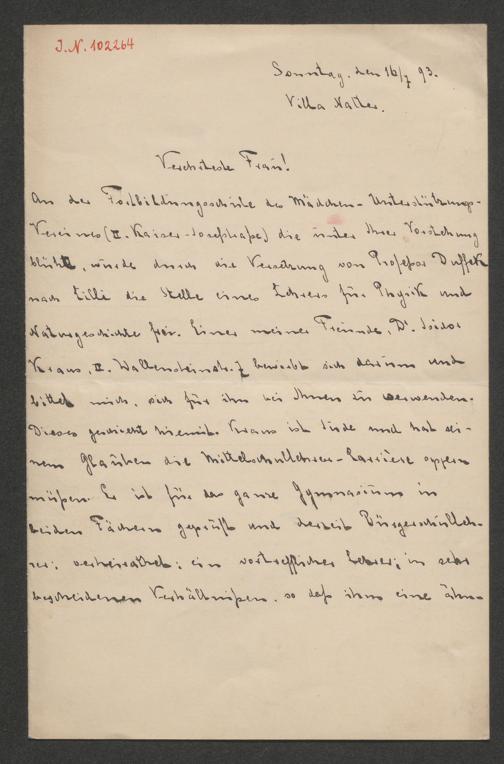 J.N. 102264
Sonntag. den 16/7 93.
Villa Natter.
Verehrteste Frau!
An der Fortbildungsschule des Mädchen-Unterstützungs-
Vereines (II. Kaiser-Josefstraße) die unter Ihrer Vorstehung
blüht, wurde durch die Versetzung von Professor Duffek
nach Cilli die Stelle eines Lehrers für Physik und
Naturgeschichte frei. Einer meiner Freunde, Dr. Isidor
Kraus, II. Wallensteinstr. 7 bewirbt sich darum und
bittet mich, sich für ihn bei Ihnen zu verwenden.
Dieses geschieht hiemit. Kraus ist Jude und hat sei-
nem Glauben die Mittelschullehrer-Carrière opfern
müßen. Er ist für das ganze Gymnasium in
beiden Fächern geprüft und derzeit Bürgerschulleh-
rer; verheiratet; ein vortrefflicher Lehrer; in sehr
bescheidenen Verhältnißen. so daß ihm eine ähn-